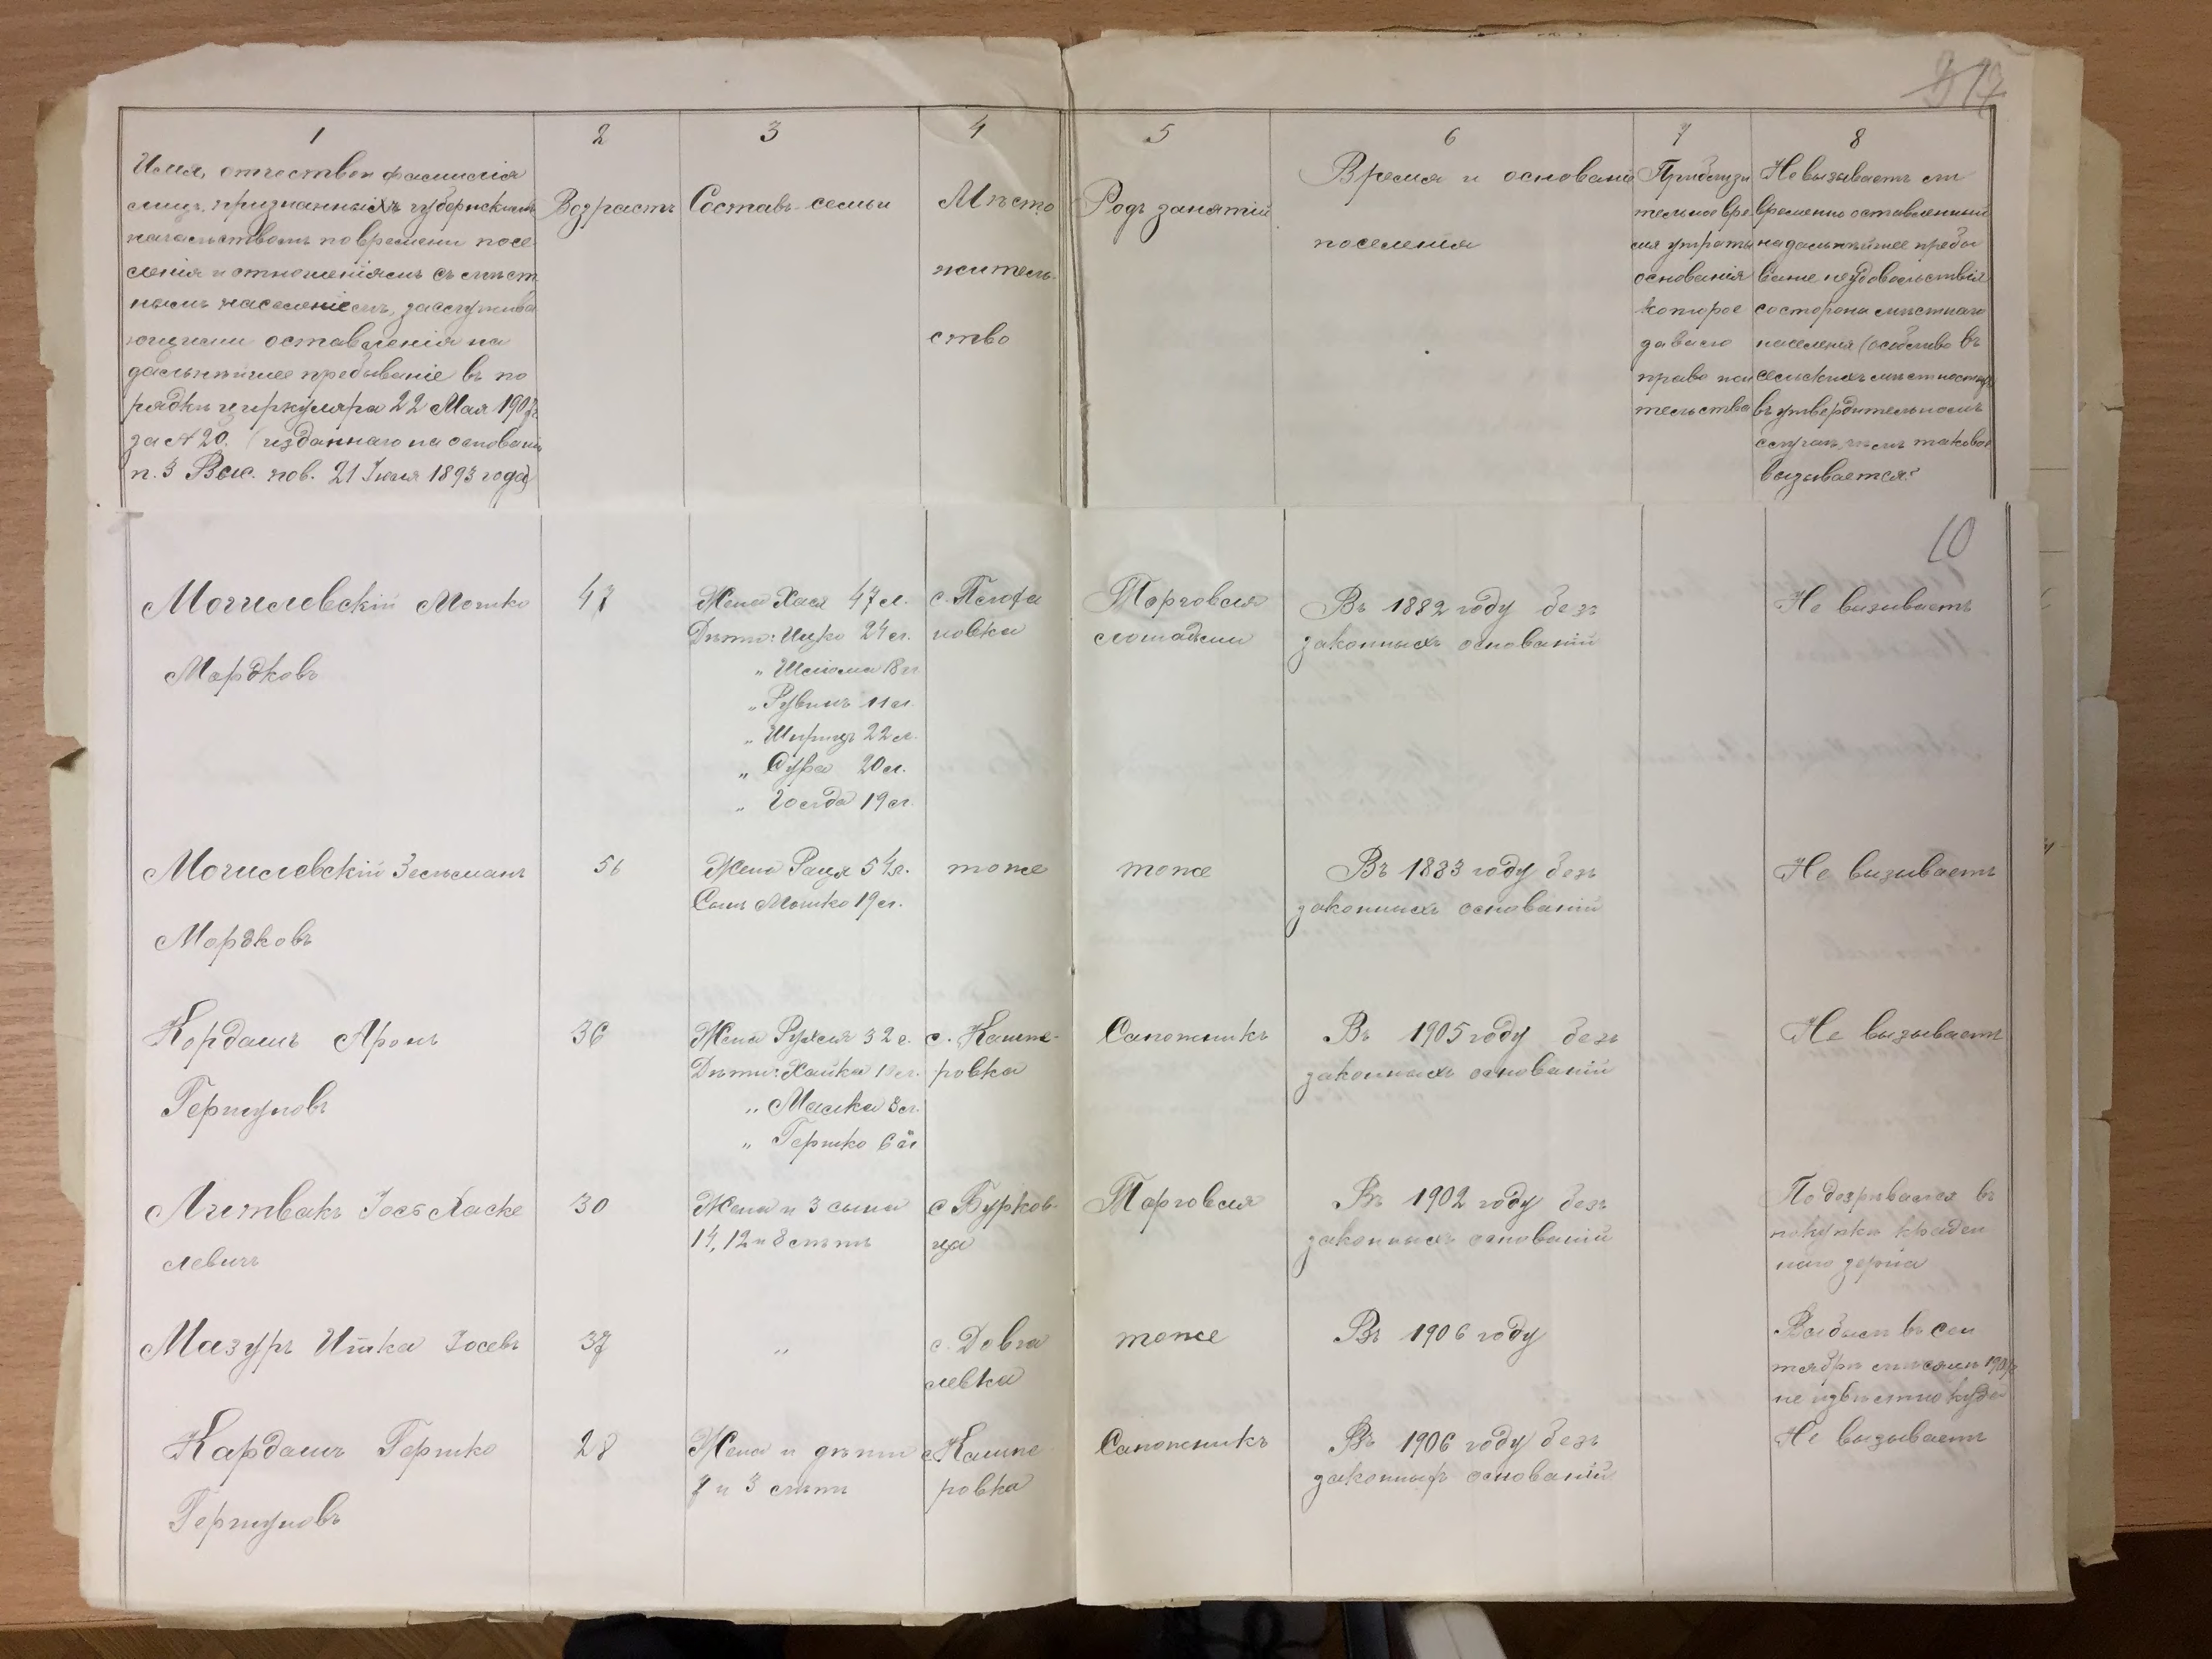 1
Имя, отчество и фамилія
лицъ, признанныхъ губернскимъ
начальствомъ по времени посе
ленія и отношеніямъ съ мѣст
нымъ населеніемъ, заслужива
ющими оставленія на
дальнѣйшее пребываніе въ по
рядкѣ циркуляра 22 Мая 1907 г.
за № 20. (изданнаго на основаніи
п. 3 Выс. пов. 21 Іюля 1893 года)
2
Возрастъ
3
Составъ семьи
4
Мѣсто
житель-
ство
5
Родъ занятій
6
Время и основаніе
поселенія
7
Приблизи
тельное вре
мя утраты
основанія
которое
давало
право жи
тельства
8
Не вызываетъ ли
временно оставленный
на дальнѣйшее пребы
ваніе неудовольствія
со стороны мѣстнаго
населенія (особливо въ
сельскихъ мѣстностяхъ
въ утвердительномъ
случаѣ, чѣмъ таковое
вызывается?
10
Могилевскій Мошко
Мордковъ
47
Жена Хася 47 л.
Дѣти: Ицко 24 л.
„ Шлiома 18 л.
„ Рувинъ 11 л.
„ Шпринца 22 л.
„ Сура 20 л.
„ Голда 19 л.
с. Плоха
новка
Торговля
лошадьми
Въ 1882 году безъ
законныхъ основаній
Не вызываетъ
Могилевскій Зельманъ
Мордковъ
56
Жена Раця 54 л.
Сынъ Мошко 19 л.
тоже
тоже
Въ 1883 году безъ
законныхъ основаній
Не вызываетъ
Кордашъ Аронъ
Гершуновъ
36
Жена Рухля 32 л.
Дѣти: Хайка 10 л.
„ Малка 8 л.
„ Гершко 6 л.
с. Кашпе-
ровка
Сапожникъ
Въ 1905 году безъ
законныхъ основаній
Не вызываетъ
Литвакъ Іось Хаске
левичъ
30
Жена и 3 сына
14, 12 и 8 лѣтъ
с. Бурков-
ца
Торговля
Въ 1902 году безъ
законныхъ основаній
Подозрѣвался въ
покупкѣ краден
наго зерна
Мазуръ Итка Іосевъ
37
„
с. Довга
левка
тоже
Въ 1906 году
Выбылъ въ сен
тябрѣ мѣсяцѣ 190
не извѣстно куда
Кардашъ Гершко
Гершуновъ
28
Жена и дѣти
7 и 3 лѣтъ
с. Кашпе
ровка
Сапожникъ
Въ 1906 году безъ
законныхъ основаній
Не вызываетъ